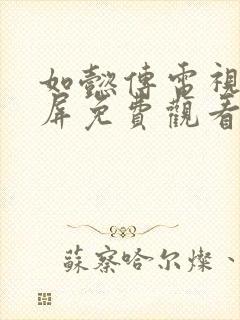 如懿傳電視
屏免費觀看
蘇察哈尔燦、